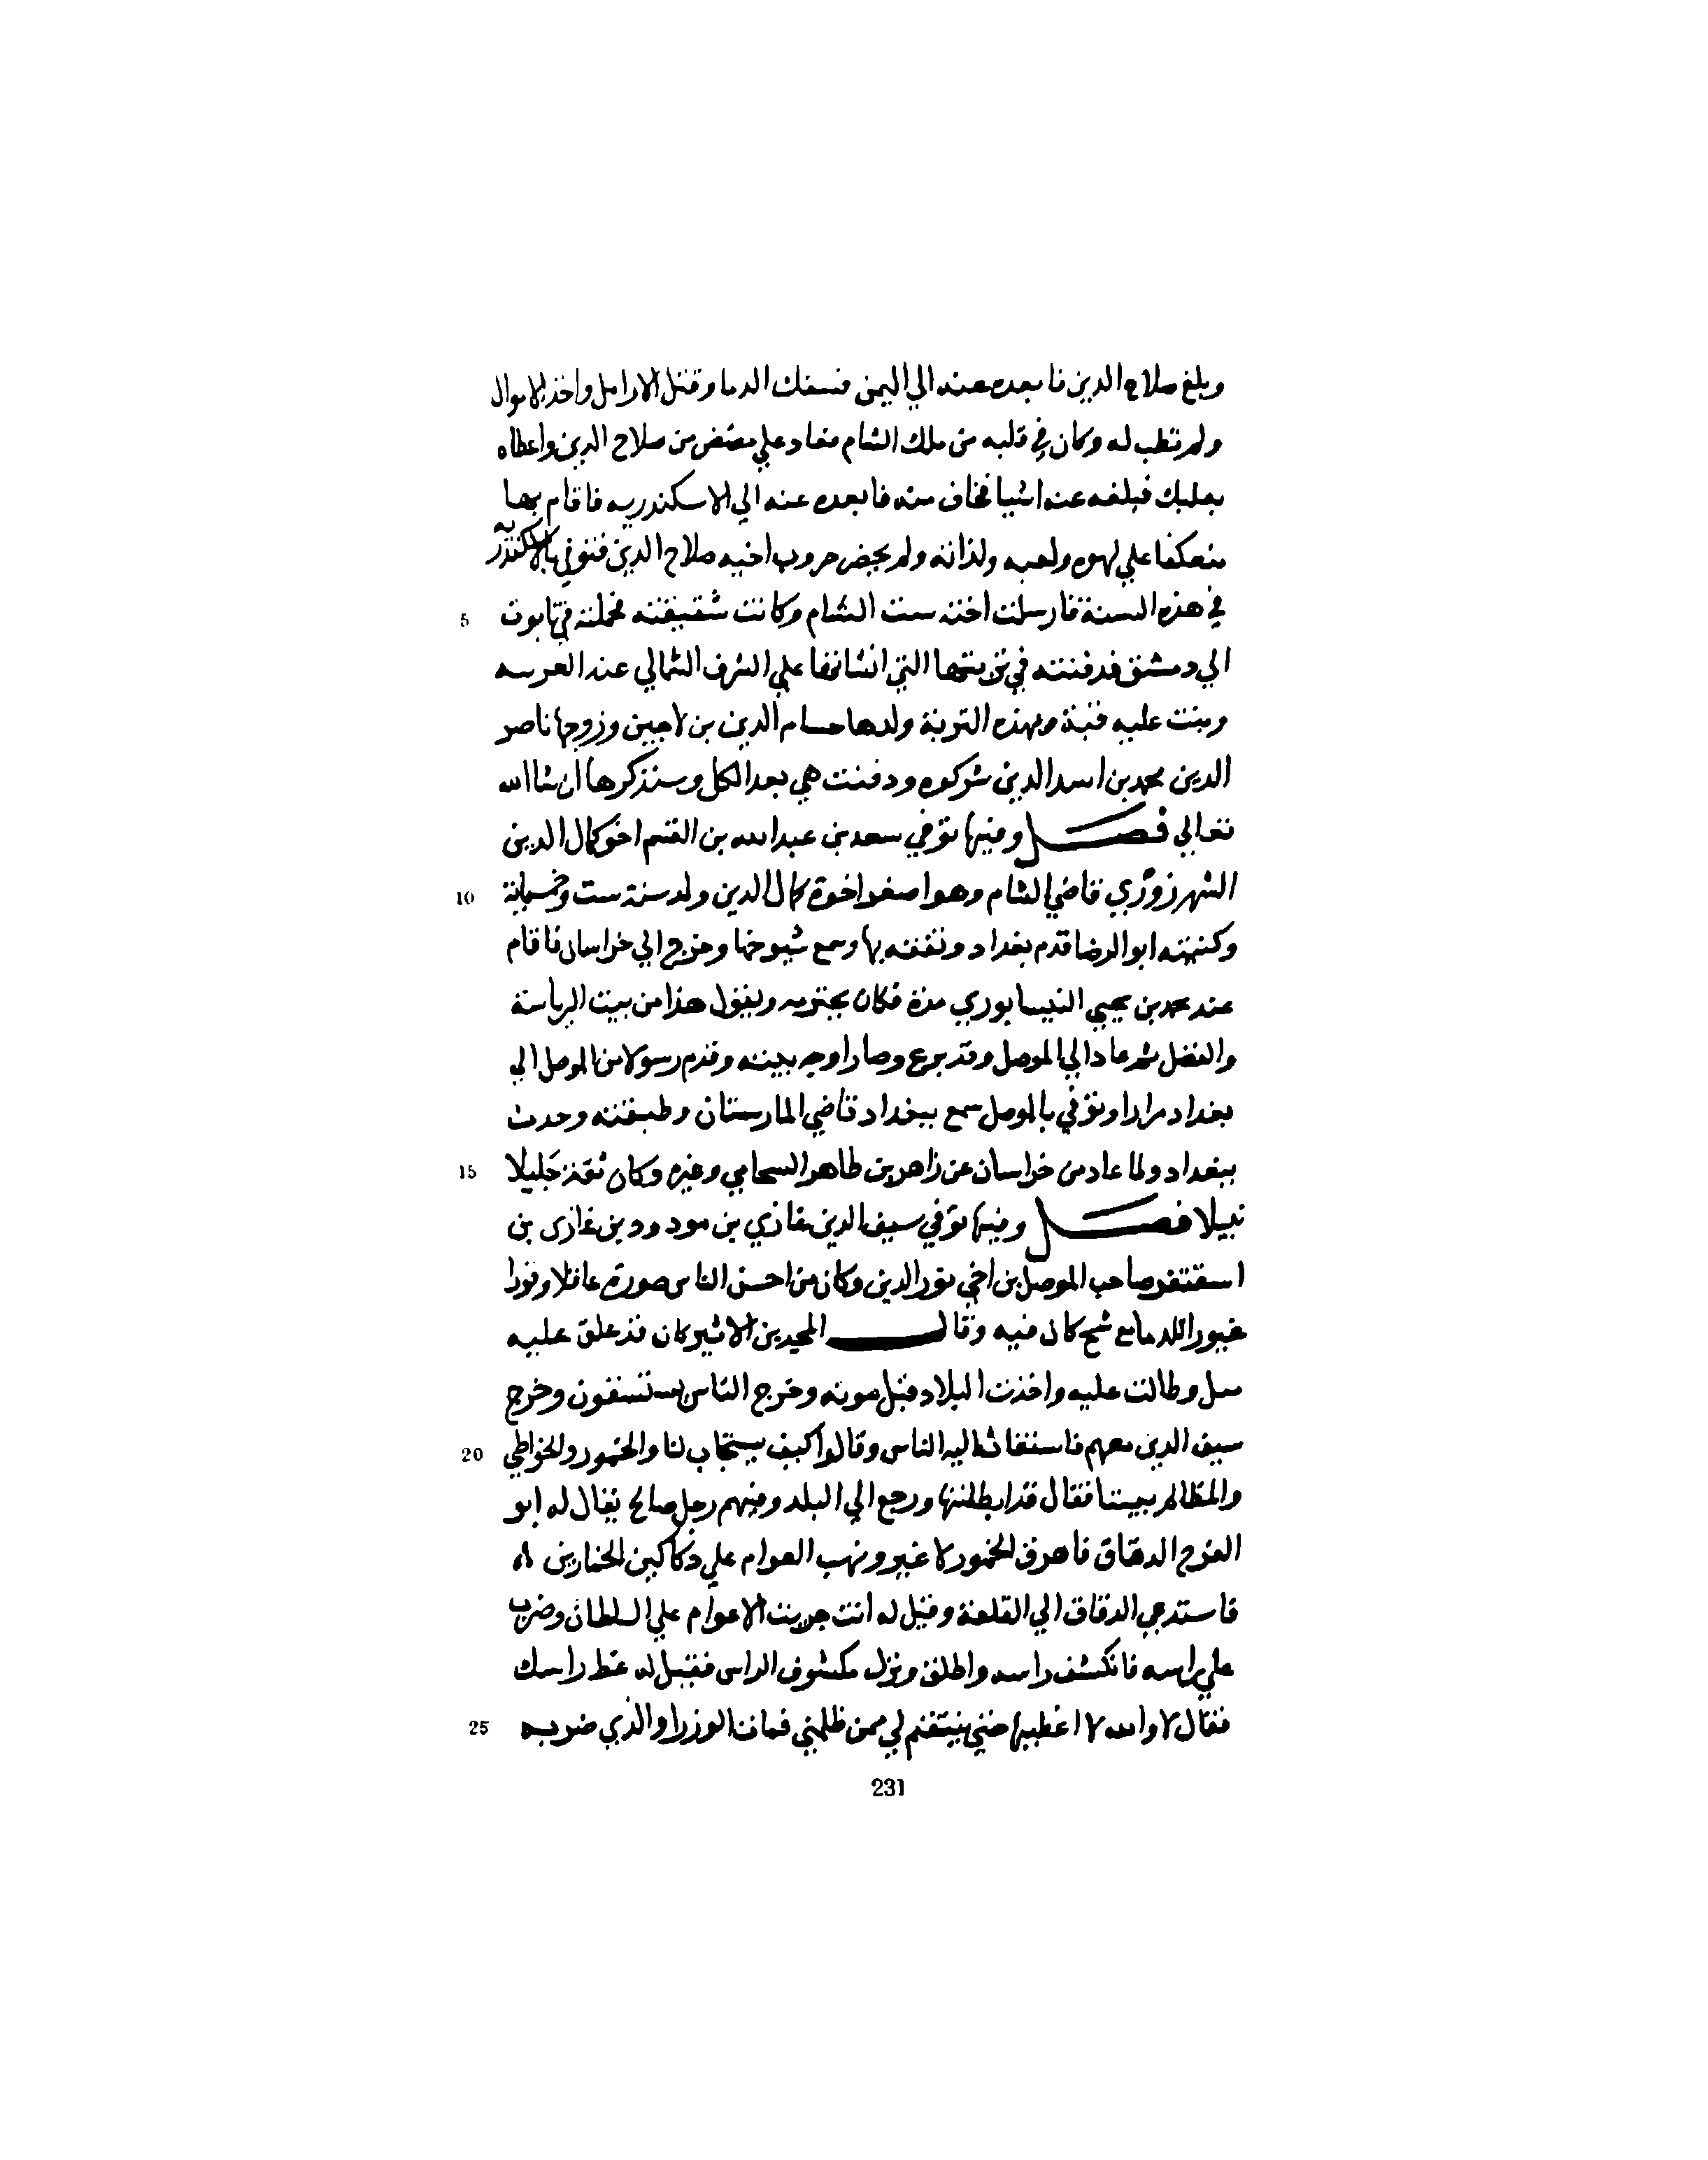 وبلغ صلاح الدين فابعده عنه الي اليمن فسفك الدما وقتل الارامل واخذ الاموال
ولم تطب له وكان في قلبه من ملك الشام فعاد علي مضض من صلاح الدين واعطاه
بعلبك فبلغه عنه اشيا فخاف منه فابعده عنه الي الاسكندريه فاقام بها
منعكفا علي لهوه ولعبه ولذاته ولم يحضر حروب اخيه صلاح الدين فتوفي بالاسكندريه
في هذه السنة فارسلت اخته ست الشام وكانت شقيقته فحملته في تابوت 5
الي دمشق فدفنته في تربتها التي انشاتها علي الشرف الشمالي عند العرسه
وبنت عليه قبة وبهذه التربة ولدها حسام الدين بن لاجين وزوجها ناصر
الدين محمد بن اسد الدين شركوه ودفنت هي بعد الكل وسنذكرها ان شا الله
تعالي فصل وفيها توفي سعد بن عبد الله بن القسم اخو كمال الدين
الشهرزوري قاضي الشام وهو اصغر اخوة كمال الدين ولد سنة ست وخمسماية 10
وكنيته ابو الرضا قدم بغداد وتفقه بها وسمع شيوخها وخرج الي خراسان فاقام
عند محمد بن يحيي النيسابوري مدة فكان يحترمه ويقول هذا من بيت الرياسة
والفضل ثم عاد الي الموصل وقد برع وصار اوجه بيته وقدم رسولا من الموصل الي
بغداد مرارا وتوفي بالموصل سمع ببغداد قاضي المارستان وطبقته وحدث
ببغداد ولما عاد من خراسان عن زاهر بن طاهر السحامي وغيره وكان ثقة جليلا 15
نبيلا فصل وفيها توفي سيف الدين غازي بن مودود بن غازي بن
اسقنقر صاحب الموصل بن اخي نور الدين وكان من احسن الناس صورة عاقلا وقورا
غيورا للدما مع شح كان فيه وقال المجد بن الاثير كان قد علق عليه
سل وطالت عليه واخذت البلاد قبل موته وخرج الناس يستسقون وخرج
سيف الدين معهم فاستغاث اليه الناس وقالوا كيف يستجاب لنا والخمور والخواطي 20
والمظالم بيننا فقال قد ابطلتها ورجع الي البلد وفيهم رجل صالح يقال له ابو
الفرج الدقاق فاهرق الخمور لا غير ونهب العوام علي دكاكين الخمارين
فاستدعي الدقاق الي القلعة وقيل له انت جريت الاعوام علي السلطان وضرب
علي براسه فانكشف راسه واطلق ونزل مكشوف الراس فقيل له غط راسك
فقال لا والله لا اغطيها حتي ينتقم لي ممن ظلمني فمات الوزرا والذي ضربه 25
231